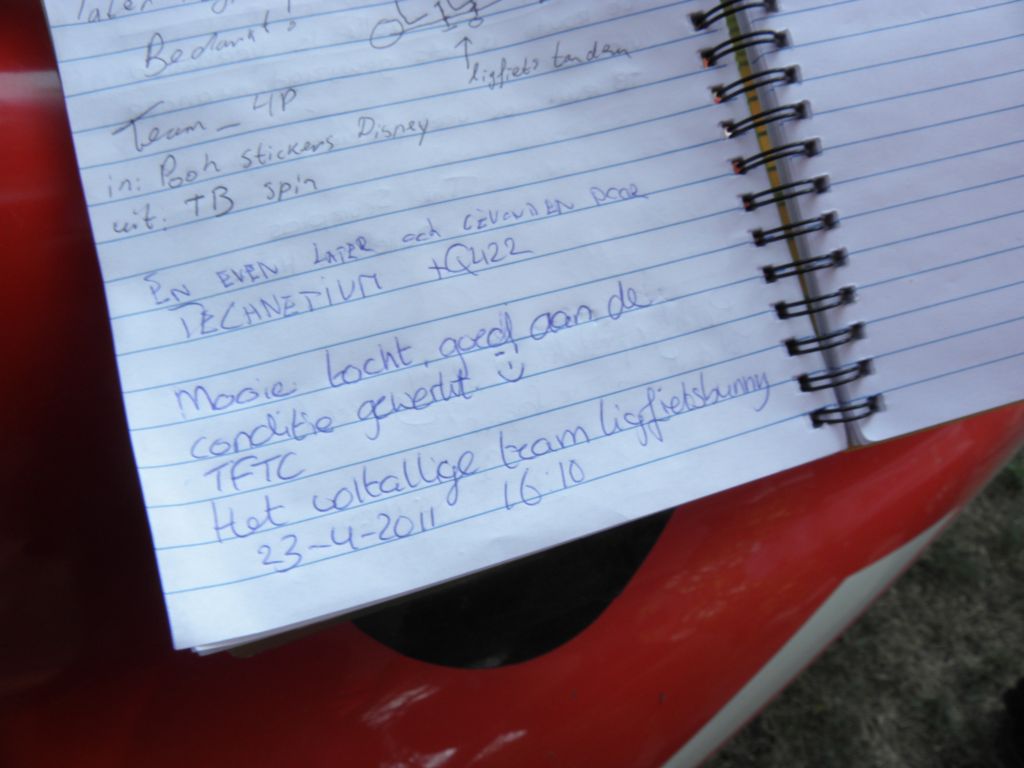 later
Bedankt!
ligfiets tandem
Team - 4P
in: Pooh stickers Disney
uit: TB spin
EN EVEN LATER OOK GEVONDEN DOOR
TECHNETIUM +Q422
Mooie tocht, goed aan de
conditie gewerkt
TFTC
Het voltallige team ligfietsbunny
23-4-2011 16:10